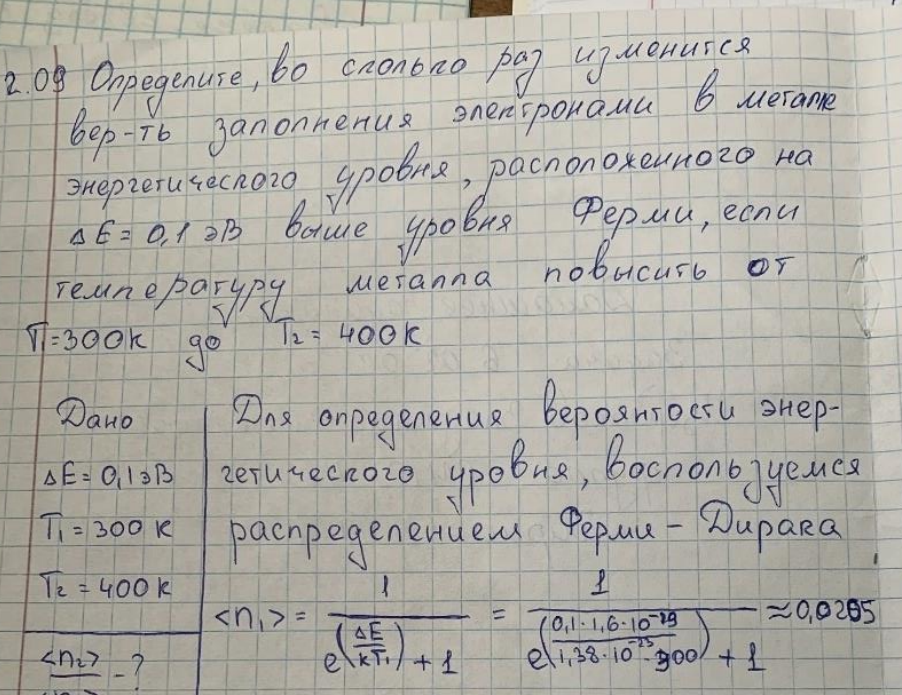 2.09 Определите, во сколько раз изменится
вер-ть заполнения электронами в металле
энергетического уровня, расположенного на
ΔE = 0,1 эВ выше уровня Ферми, если
температуру металла повысить от
T₁=300К до T₂ = 400К
Дано
ΔE = 0,1 эВ
T₁ = 300 К
T₂ = 400 К
<n₂> - ?
Для определения вероятности энер-
гетического уровня, воспользуемся
распределением Ферми - Дирака
<n₁> = 1 / (e^(ΔE/kT₁) + 1) = 1 / (e^(0,1·1,6·10⁻¹⁹/1,38·10⁻²³·300) + 1) ≈ 0,0205